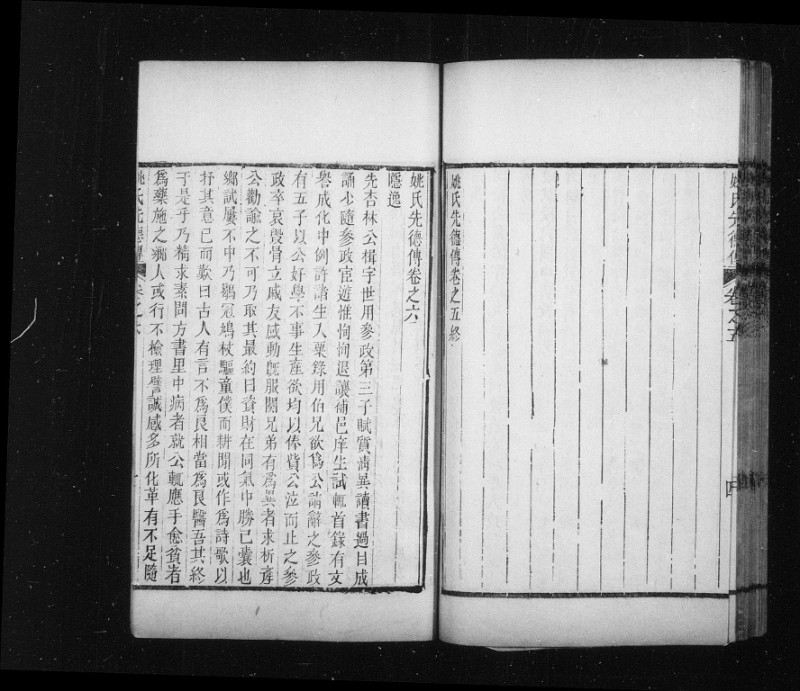 姚氏先德傳
卷之五
四
姚氏先德傳卷之五終
姚氏先德傳卷之六
隱逸
先杏林公楫字世用參政第三子賦質淸異讀書過目成
誦少隨參政宦遊惟恂恂退讓補邑庠生試輒首錄有文
譽成化中例許諸生入粟錄用伯兄欲爲公謀辭之參政
有五子以公好學不事生產欲均以俸貲公泣而止之參
政卒哀毀骨立戚友感動旣服闋兄弟有爲異者求析產
公勸諭之不可乃取其最約曰貲財在同氣中勝己囊也
鄉試屢不中乃鶡冠鳩杖驅童僕而耕閒或作爲詩歌以
抒其意已而歎曰古人有言不爲良相當爲良醫吾其終
于是乎乃精求素問方書里中病者就公輒應手愈貧者
爲藥施之鄉人或行不檢理譬誠感多所化革有不足隨
姚氏先德傳
卷之六
一